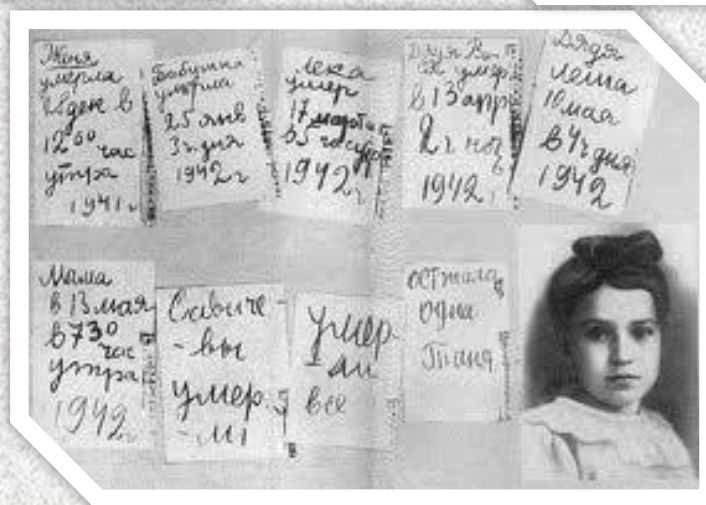 Женя
умерла
28 дек в
12 00 час
утра
1941 г
Бабушка
умерла
25 янв
3ч. дня
1942 г
Лека
умер
17 марта
в 5 час утр
1942 г
Дядя Ва
ся умер
в 13 апр
2 ч ноч
1942 г
Дядя
Леша
10 мая
в 4ч дня
1942
Мама
в 13 мая
в 7 30
час
утра
1942 г
Савиче-
-вы
умер-
-ли
умер
-ли
все
осталась
одна
Таня